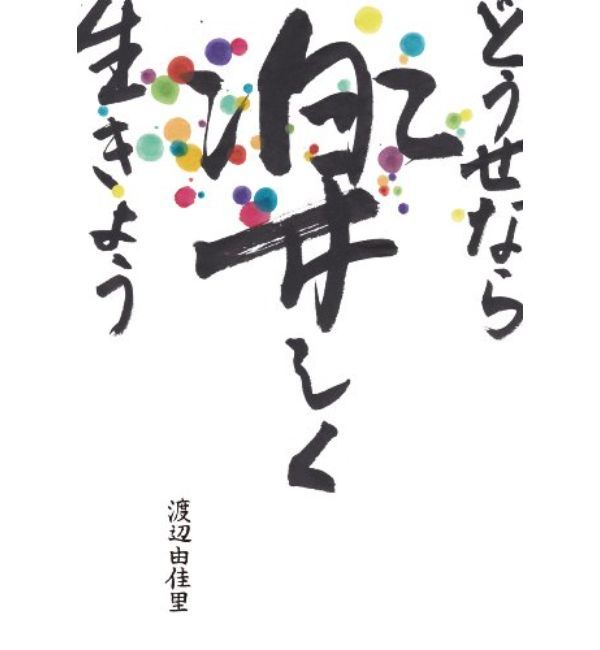 どうせなら
楽しく
生きよう
渡辺由佳里